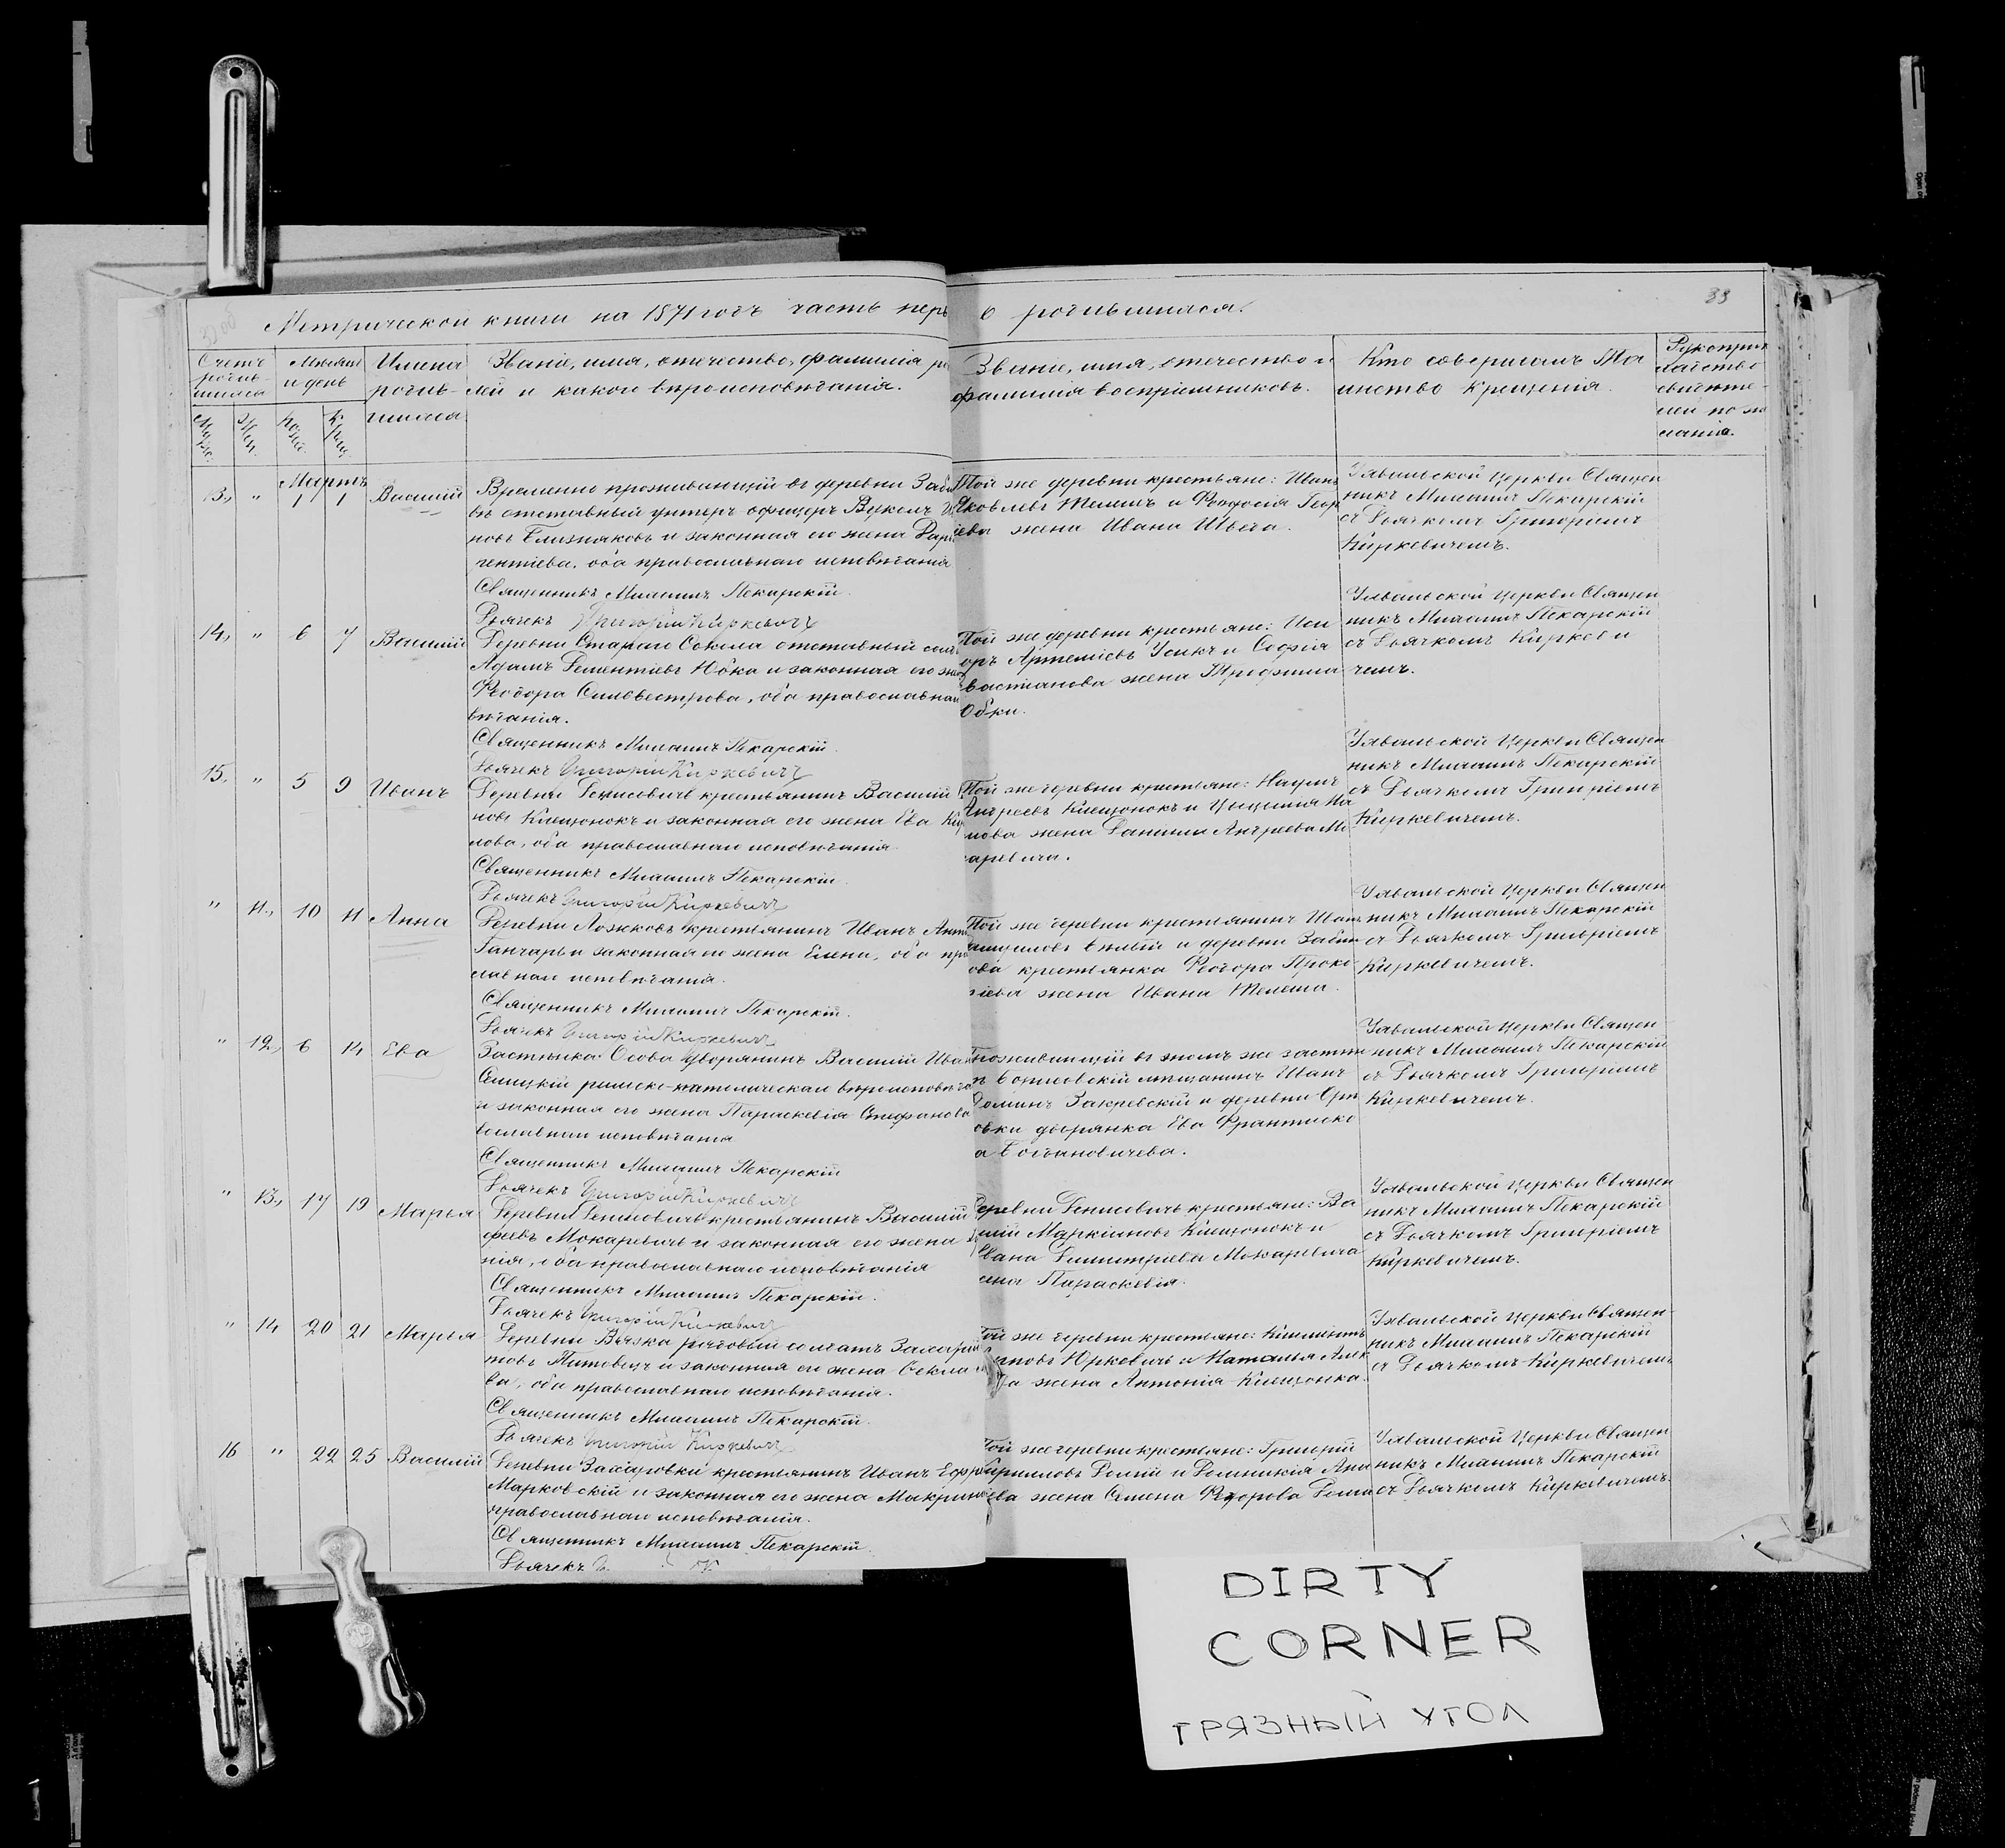 33
Метрической книги на 1871 годъ часть перв о родившихся.
Счетъ родив-шихся
Мѣсяцъ и день
Имена родив-шихся
Званіе, имя, отечество, фамилія ро
лей и какого вѣроисповѣданія.
Званіе, имя, отечество и
фамилія воспріемниковъ.
Кто совершалъ Та
инство Крещенія.
Рукоприк
ладство
свидѣте-
лей по же
ланію.
Мартъ
13, " 1 1 Василій
Временно проживающій въ деревни Заби
въ отставный унтеръ офицеръ
новъ Близняковъ и законная его жена Дарі
рентіева, оба православнаго исповѣданія
Священникъ Михаилъ Пекарскій.
Дьячекъ Григорій Киркевичъ
Той же деревни крестьяне: Иванъ
Яковлевъ Телешъ и Феодосія Геор
іева жена Ивана Швеца.
Уявальской церкви Священ
никъ Михаилъ Пекарскій
съ Дьячкомъ Григоріемъ
Киркевичемъ.
14, " 6 7 Василій
Деревни Старая Сокола отставный сол
Адамъ Дементіевъ и законная его же
Феодора Сильвестрова, оба православнаг
вѣданія.
Священникъ Михаилъ Пекарскій
Дьячекъ Григорій Киркевичъ
Той же деревни крестьяне:
оръ Артеміевъ Усикъ и Софія
вастианова жена Трофима
Обки.
Уявальской церкви Священ
никъ Михаилъ Пекарскій
съ Дьячкомъ Киркеви
чемъ.
15. " 5 9 Иванъ
Деревни Денисовичъ крестьянинъ Василій
новъ Клещонокъ и законная его жена Ева Ки
лова, оба православнаго исповѣданія
Священникъ Михаилъ Пекарскій.
Дьячекъ Григорій Киркевичъ
Той же деревни крестьяне: Наумъ
Андреевъ Клещонокъ и
нова жена Даніила Андреева Мо
каревича.
Уявальской церкви Священ
никъ Михаилъ Пекарскій
съ Дьячкомъ Григоріемъ
Киркевичемъ.
" 11, 10 11 Анна
Деревни Ложковъ крестьянинъ Иванъ
Ганчаръ и законная его жена Елена, оба пра
славнаго исповѣданія.
Священникъ Михаилъ Пекарскій.
Дьячекъ Григорій Киркевичъ
Той же деревни крестьянинъ Иван
Бѣлый и деревни Заби
ова крестьянка Феодора Проко
піева жена Ивана Телеша.
Уявальской церкви Священ
никъ Михаилъ Пекарскій
съ Дьячкомъ Григоріемъ
Киркевичемъ.
" 12, 6 14 Ева
Застѣнка Осова дворянинъ Василій Ива
римско-католическаго вѣроисповѣда
и законная его жена Параскевія Стефанова
вославнаго исповѣданія
Священникъ Михаилъ Пекарскій
Дьячекъ Григорій Киркевичъ
Проживающій въ томъ же застѣн
Борисовскій мѣщанинъ Иванъ
Закревскій и деревни
овки дворянка Ева Франтишко
а Богдановичева.
Уявальской церкви Священ
никъ Михаилъ Пекарскій
съ Дьячкомъ Григоріемъ
Киркевичемъ.
" 13, 17 19 Марья
Деревни Денисовичъ крестьянинъ Василій
феевъ Мокаревичъ и законная его жена
нія, оба православнаго исповѣданія
Священникъ Михаилъ Пекарскій.
Дьячекъ Григорій Киркевичъ
Деревни Денисовичъ крестьяне: Ва
илій Маркіановъ Клещонокъ и
Ивана Димитріева Мокаревича
жена Параскевія.
Уявальской церкви Священ
никъ Михаилъ Пекарскій
съ Дьячкомъ Григоріемъ
Киркевичемъ.
" 14 20 21 Марья
Деревни Вязка рядовый солдатъ Захарій
товъ Титовецъ и законная его жена Ѳекла
ва, оба православнаго исповѣданія.
Священникъ Михаилъ Пекарскій.
Дьячекъ Григорій Киркевичъ
Той же деревни крестьяне: Климентъ
Юрковичъ и Наталья Алек
ва жена Антонія Клещонка.
Уявальской церкви Священ-
никъ Михаилъ Пекарскій
съ Дьячкомъ Киркевичемъ
16 " 22 25 Василій
Деревни Захаровки крестьянинъ Иванъ Ефр
Марковскій и законная его жена Макрина
православнаго исповѣданія.
Священникъ Михаилъ Пекарскій.
Дьячекъ
Той же деревни крестьяне: Григорій
Кирилловъ и Домникія
ева жена Семена Федорова
Уявальской церкви Священ
никъ Михаилъ Пекарскій
съ Дьячкомъ Киркевичемъ.
DIRTY
CORNER
ГРЯЗНЫЙ УГОЛ